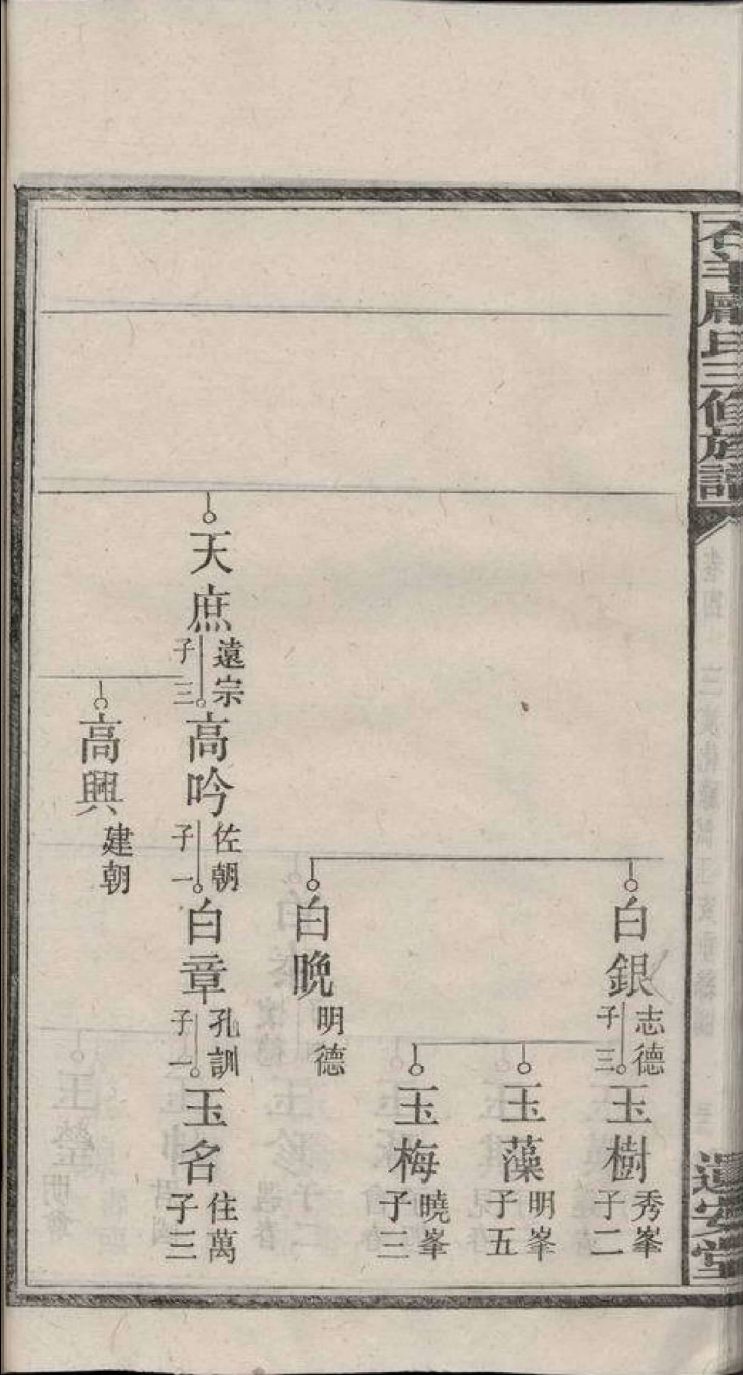 氏三修族譜
白銀
志德
子三
玉樹
秀峯
子二
玉藻
明峯
子五
玉梅
曉峯
子三
白晚
明德
天庶
遠宗
子三
高吟
佐朝
子一
白章
孔訓
子一
玉名
住萬
子三
高興
建朝